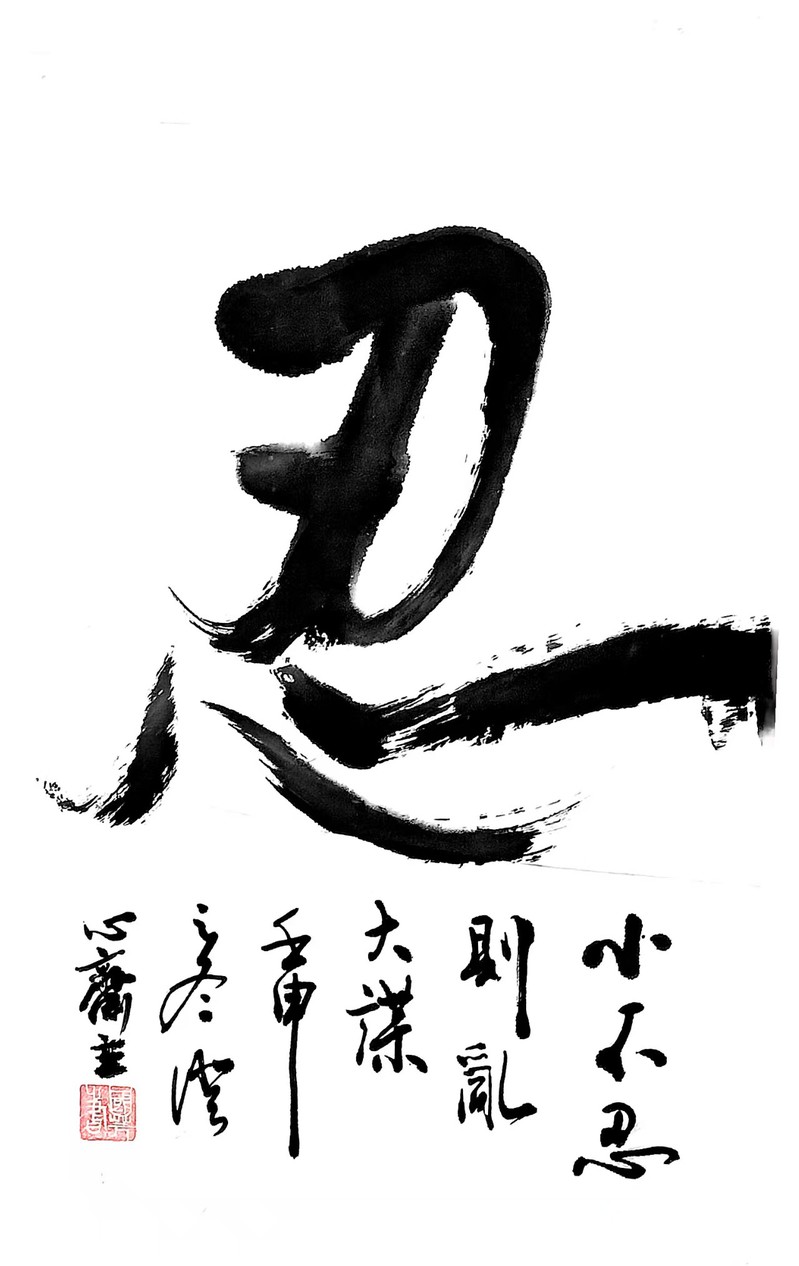 忍
小不忍
則亂
大謀
壬申
之冬澄
心齋主